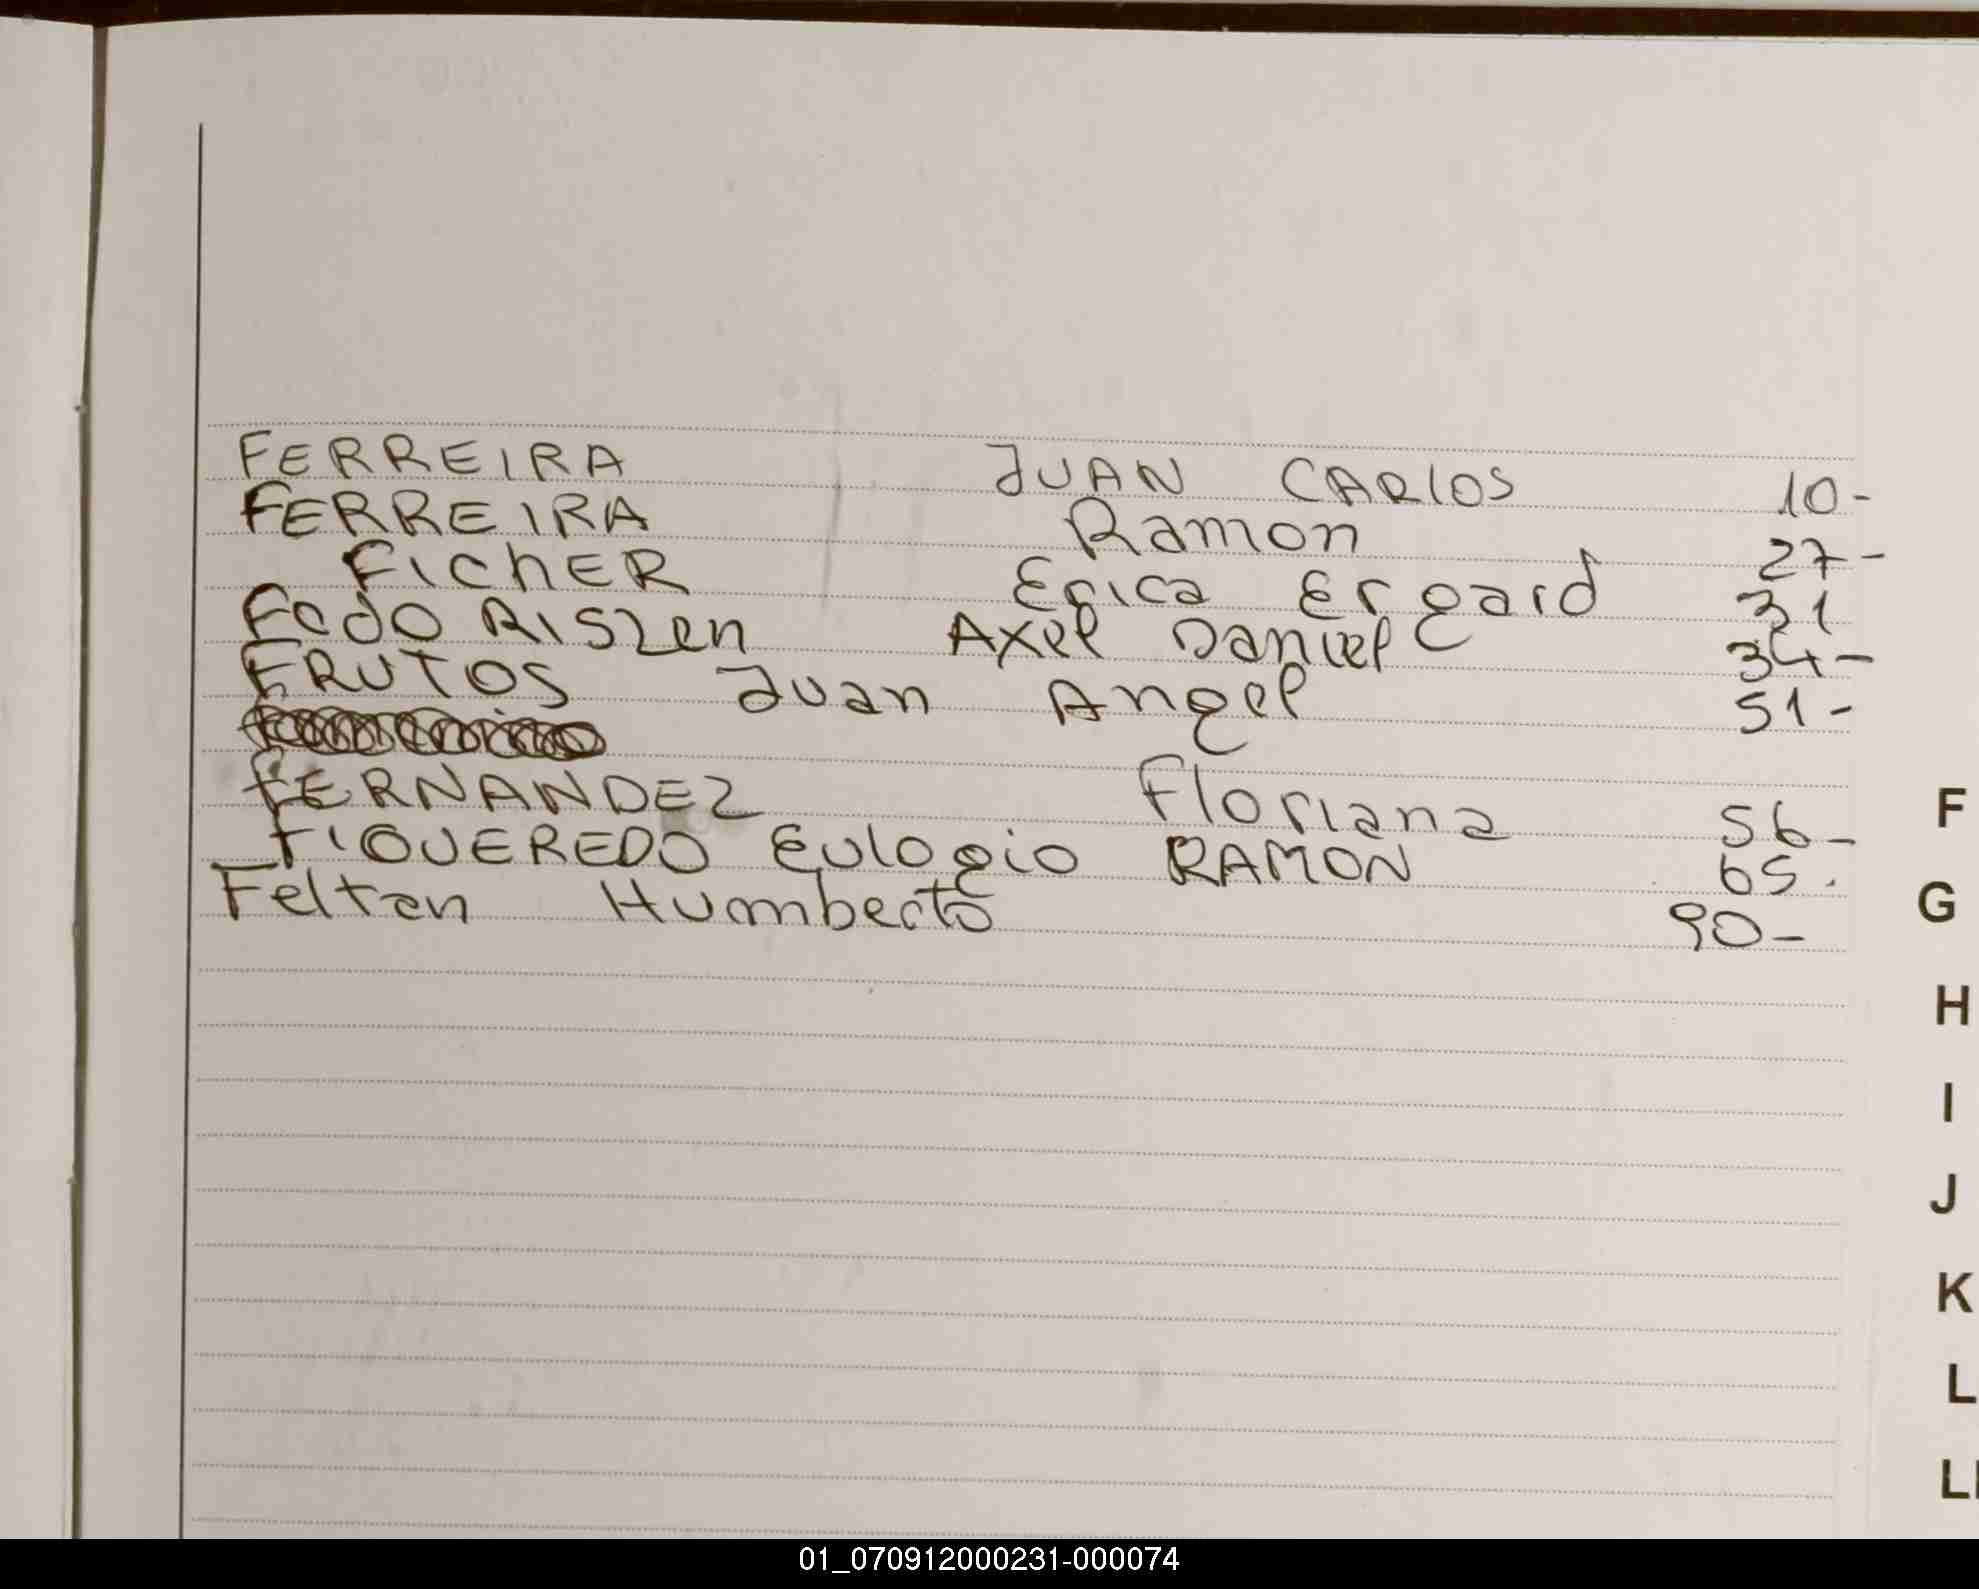 FERREIRA JUAN CARlOS 10-
FERREIRA Ramon 27-
FIChER Erica Ergard 31
Axel Daniel 34-
FRUTOS Juan Angel 51-
FERNANDEZ Floriana 56-
FIQUEREDO Eulogio RAMON 65.
Felten Humberto 90-
F
G
H
I
J
K
L
01_070912000231-000074